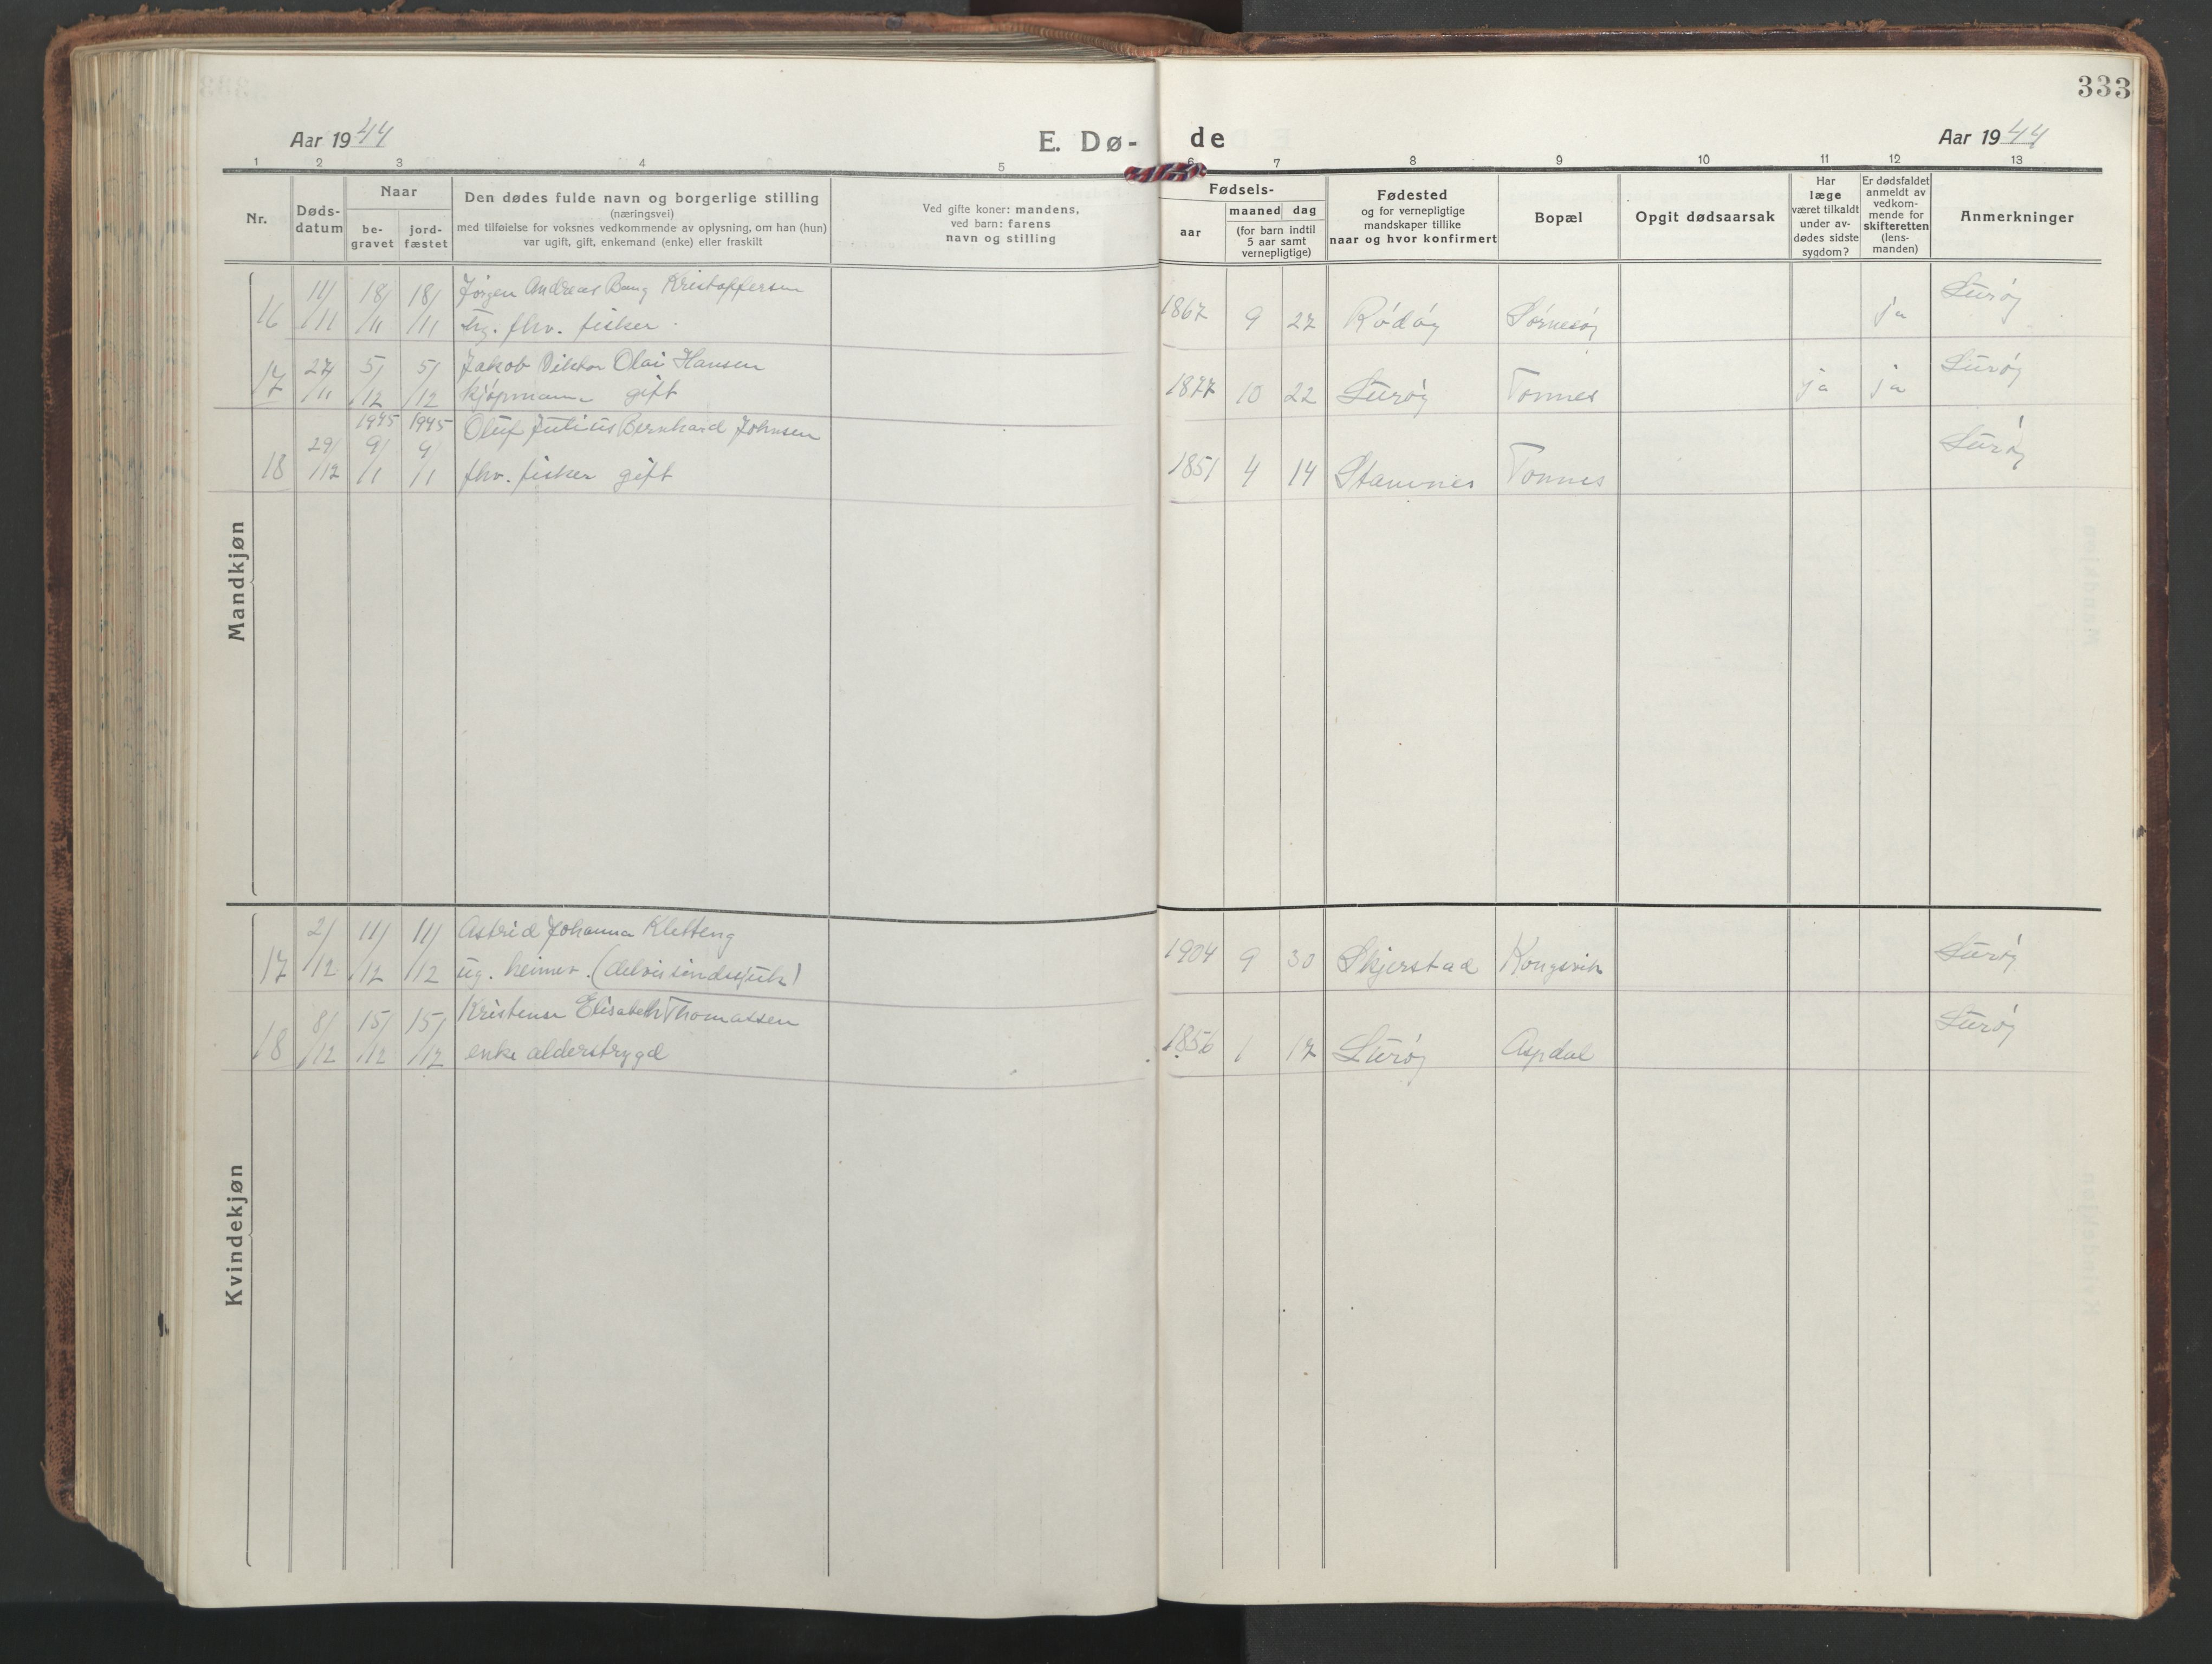 333
Aar 1944
E. Dø-
de
Aar 1944
1 2 3 4 5 6 7 8 9 10 11 12 13
Nr.
Døds-
datum
Naar
be-
gravet
jord-
fæstet
Den dødes fulde navn og borgerlige stilling
(næringsvei)
med tilføielse for voksnes vedkommende av oplysning, om han (hun)
var ugift, gift, enkemand (enke) eller fraskilt
Ved gifte koner: mandens,
ved barn: farens
navn og stilling
Fødsels-
aar
maaned dag
(for barn indtil
5 aar samt
vernepligtige)
Fødested
og for vernepligtige
mandskaper tillike
naar og hvor konfirmert
Bopæl
Opgit dødsaarsak
Har
læge
været tilkaldt
under av-
dødes sidste
sygdom?
Er dødsfaldet
anmeldt av
vedkom-
mende for
skifteretten
(lens-
manden)
Anmerkninger
Mandkjøn
16 11/11 18/11 18/11 Jørgen Andreas Bang Kristoffersen
ug. fhv. fisker. 1867 9 27 Rödöy Sörnesöy ja Luröy
17 27/11 5/12 5/12 Jakob Viktor Olai Hansen
kjöpmann gift 1877 10 22 Luröy Tonnes ja ja Luröy
1945 1945
18 29/12 9/1 9/1 Oluf Julius Bernhard Johnsen
fhv. fisker gift 1851 4 14 Stamnes Tonnes Luröy
Kvindekjøn
17 2/12 11/12 11/12 Astrid Johanna Kletteng
ug. heimev. (delvis sindssjuk) 1904 9 30 Skjerstad Kongsvik Luröy
18 8/12 15/12 15/12 Kristense Elisabeth Thomassen
enke alderstrygd 1856 1 17 Luröy Aspdal Luröy